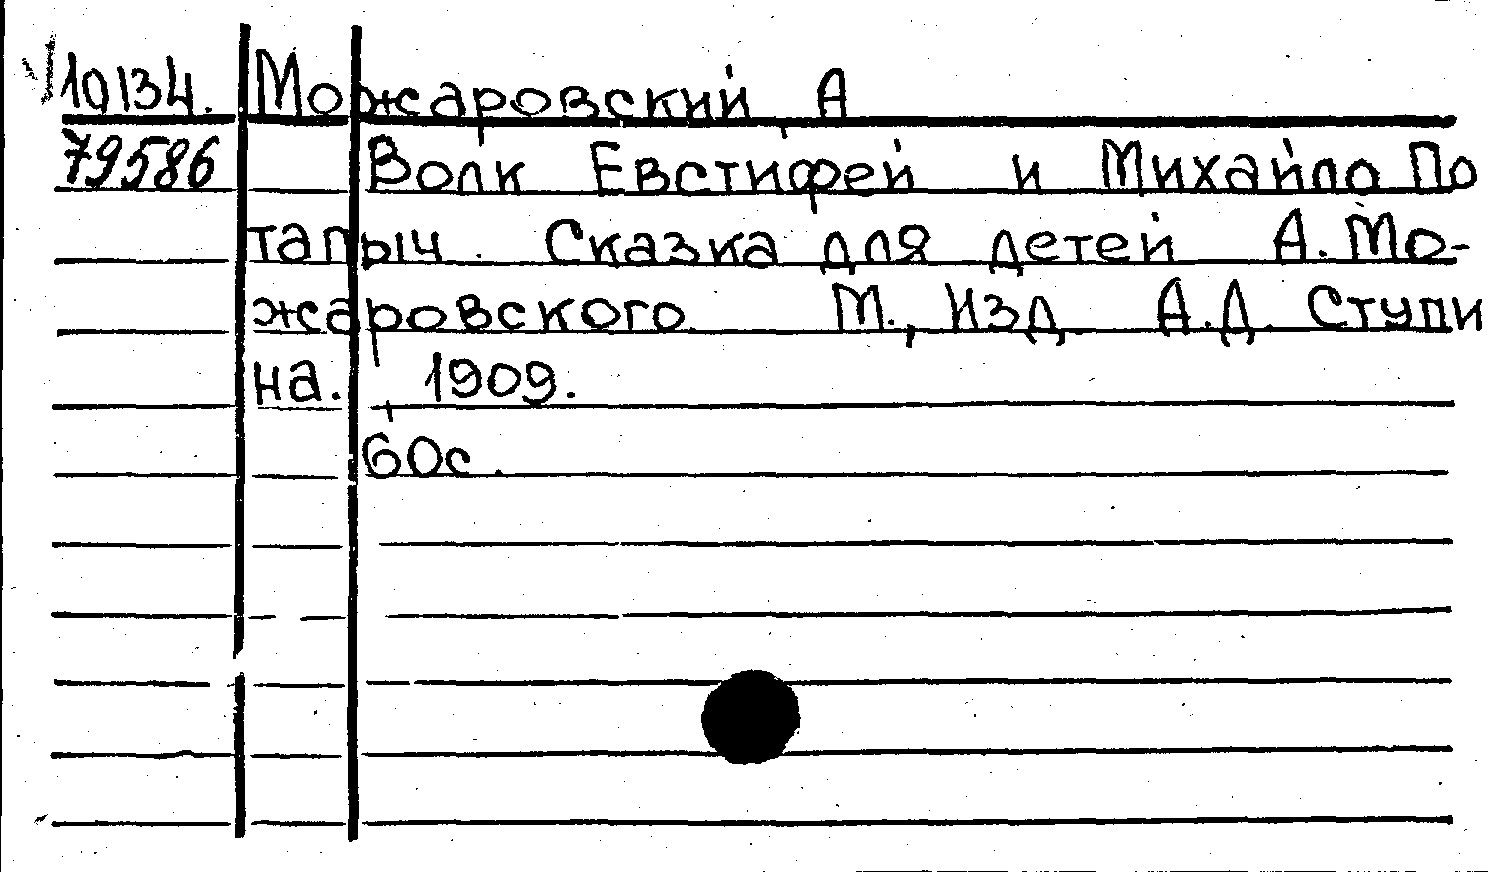 10134. Можаровский, А
79586 Волк Евстифей и Михайло По
тапыч. Сказка для детей А. Мо-
жаровского. М., Изд. А.Д. Ступи
на. 1909.
60с.